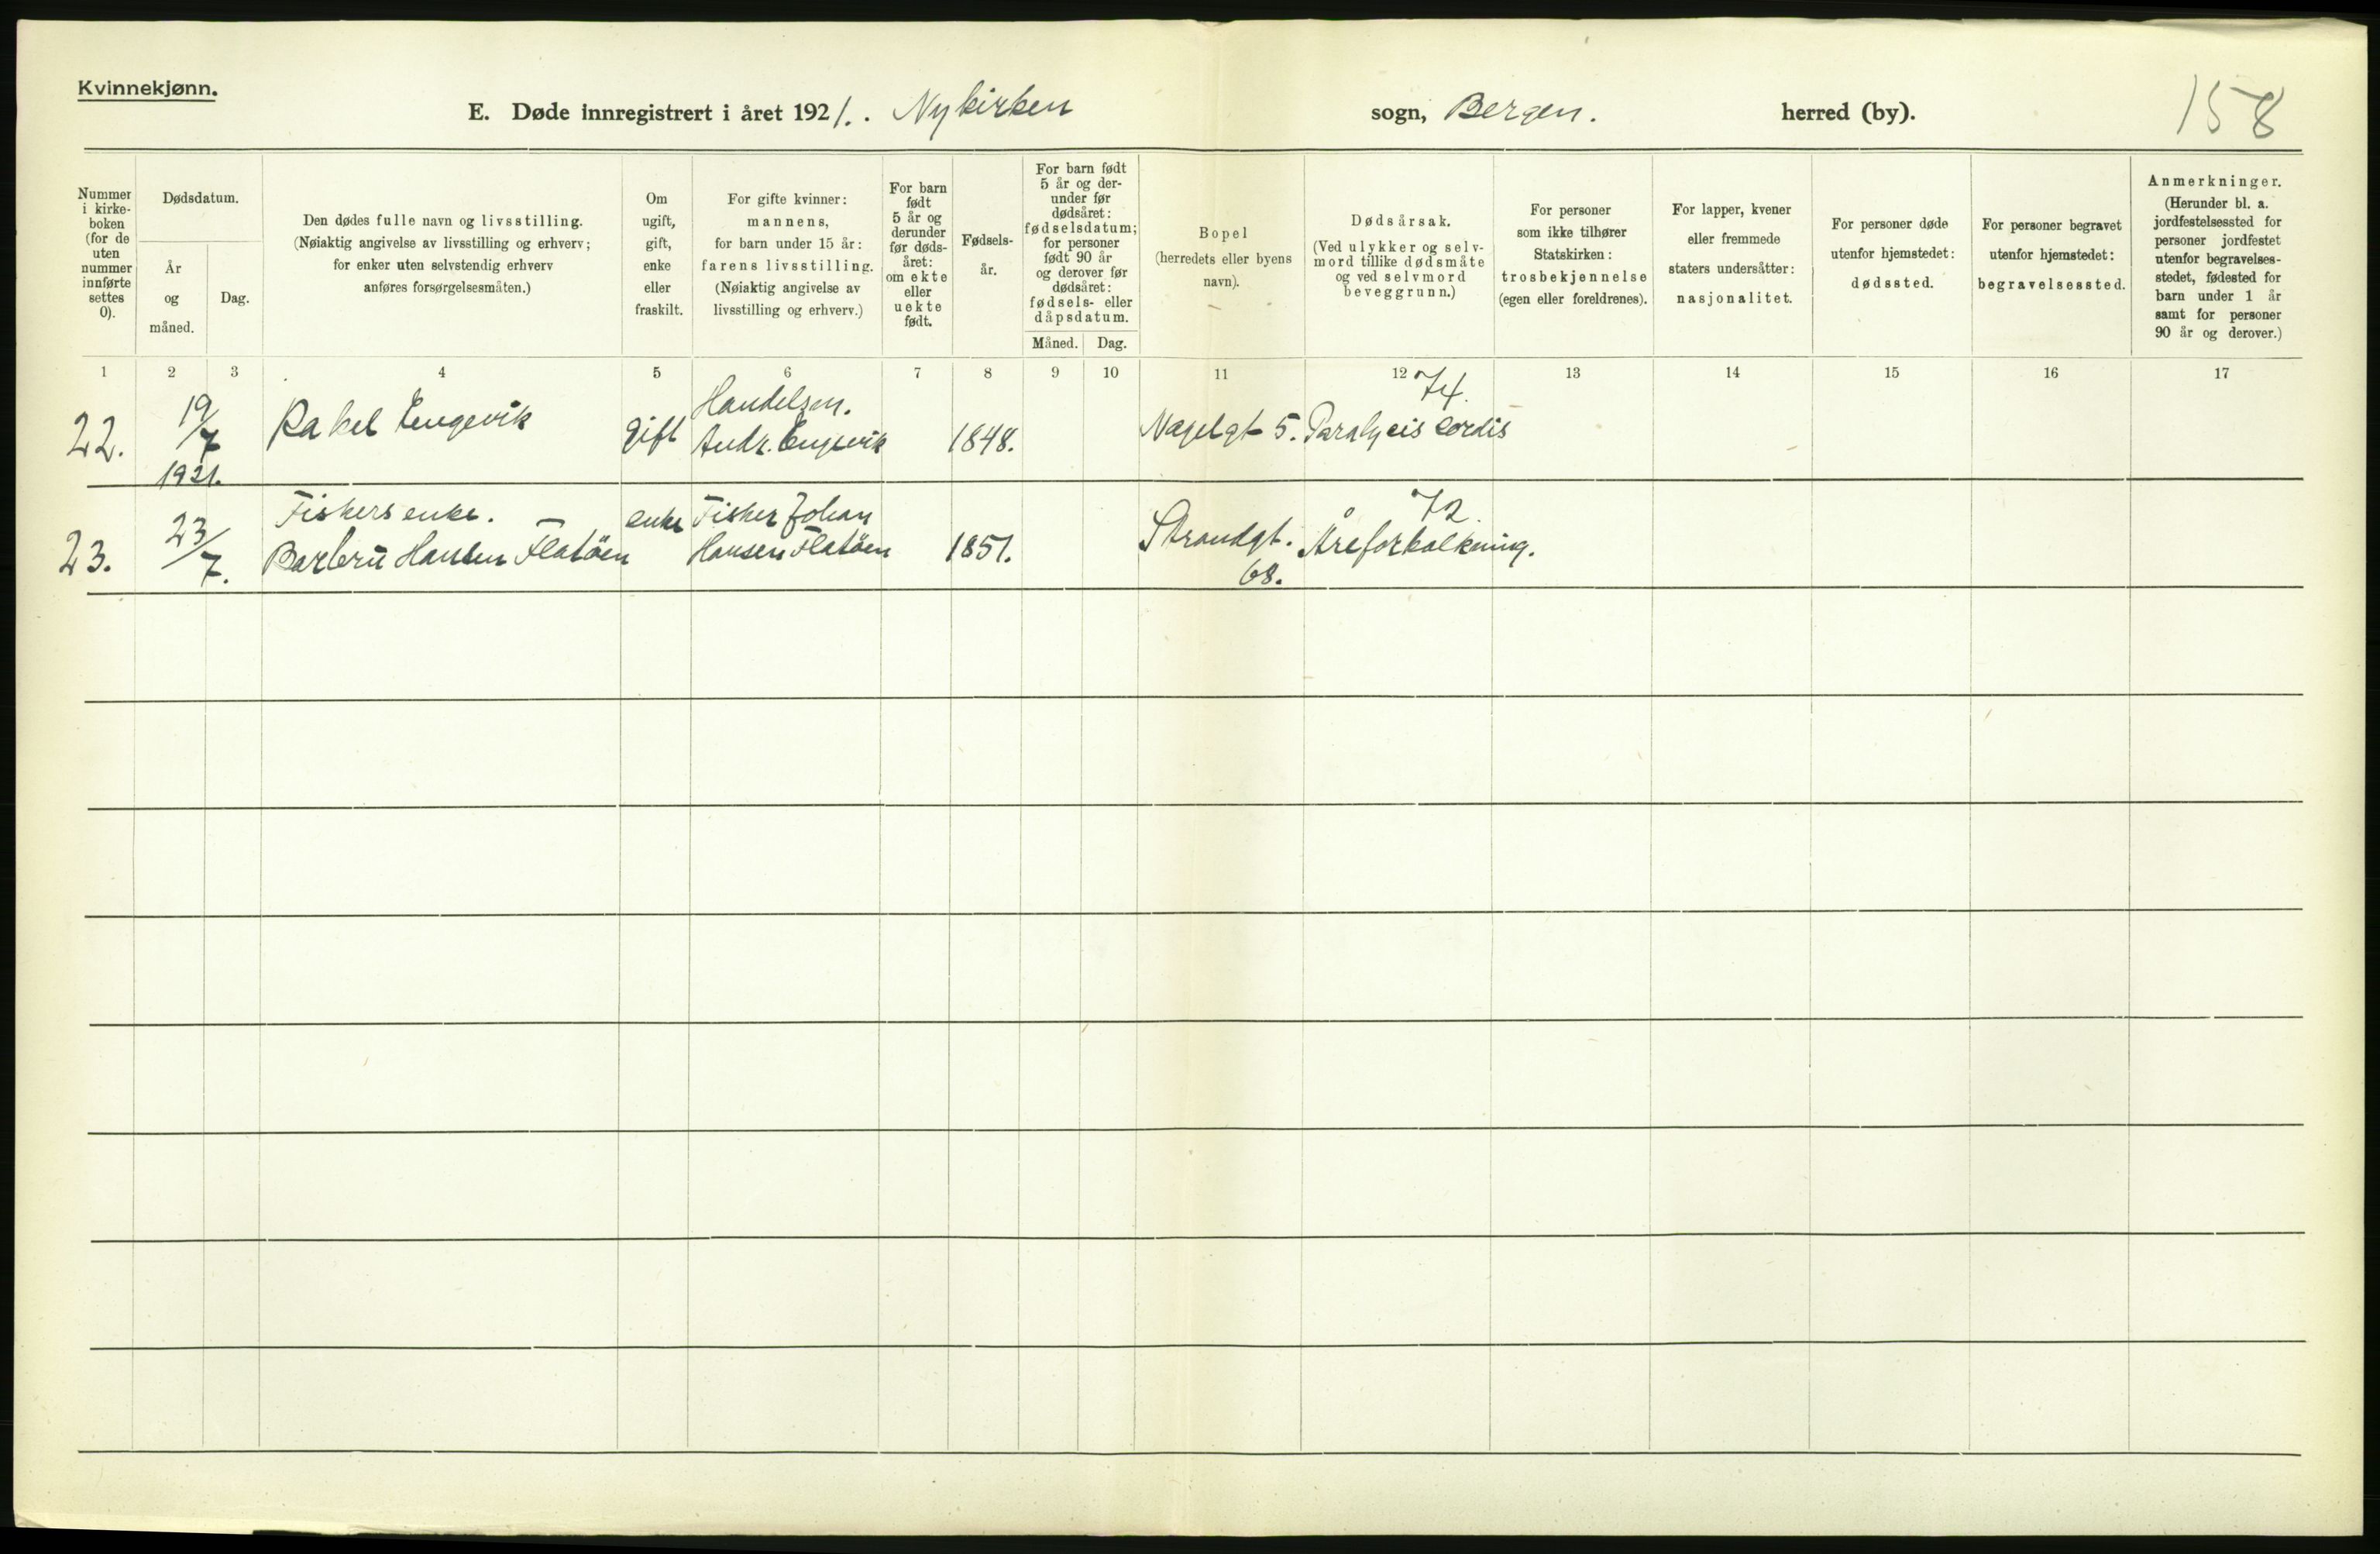 Kvinnekjønn.
E. Døde innregistrert i året 1921. . Nykirken sogn, Bergen. herred (by).
158
Nummer i kirke-boken (for de uten nummer innførte settes 0).
Dødsdatum.
År og måned.
Dag.
Den dødes fulle navn og livsstilling.
(Nøiaktig angivelse av livsstilling og erhverv;
for enker uten selvstendig erhverv
anføres forsørgelsesmåten.)
Om
ugift,
gift,
enke
eller
fraskilt.
For gifte kvinner:
mannens,
for barn under 15 år:
farens livsstilling.
(Nøiaktig angivelse av
livsstilling og erhverv.)
For barn
født
5 år og
derunder
før døds-
året:
om ekte
eller
uekte
født.
Fødsels-
år.
For barn født
5 år og der-
under før
dødsåret:
fødselsdatum;
for personer
født 90 år
og derover før
dødsåret:
fødsels- eller
dåpsdatum.
Måned. Dag.
Bopel
(herredets eller byens
navn).
Dødsårsak.
(Ved ulykker og selv-
mord tillike dødsmåte
og ved selvmord
beveggrunn.)
For personer
som ikke tilhører
Statskirken:
trosbekjennelse
(egen eller foreldrenes).
For lapper, kvener
eller fremmede
staters undersåtter:
nasjonalitet.
For personer døde
utenfor hjemstedet:
dødssted.
For personer begravet
utenfor hjemstedet:
begravelsessted.
Anmerkninger.
(Herunder bl. a.
jordfestelsessted for
personer jordfestet
utenfor begravelses-
stedet, fødested for
barn under 1 år
samt for personer
90 år og derover.)
1 2 3 4 5 6 7 8 9 10 11 12 13 14 15 16 17
22. 19/7 1921. Rakel Engevik gift Handelsm. Andr. Engevik 1848. Nagelgt 5. 74. Paralysis cordis
23. 23/7. Fiskers enke. Barbru Hansen Flatöen enke Fisker Johan Hansen Flatöen 1851. Strandgt. 68. 72. Åreforkalkning.